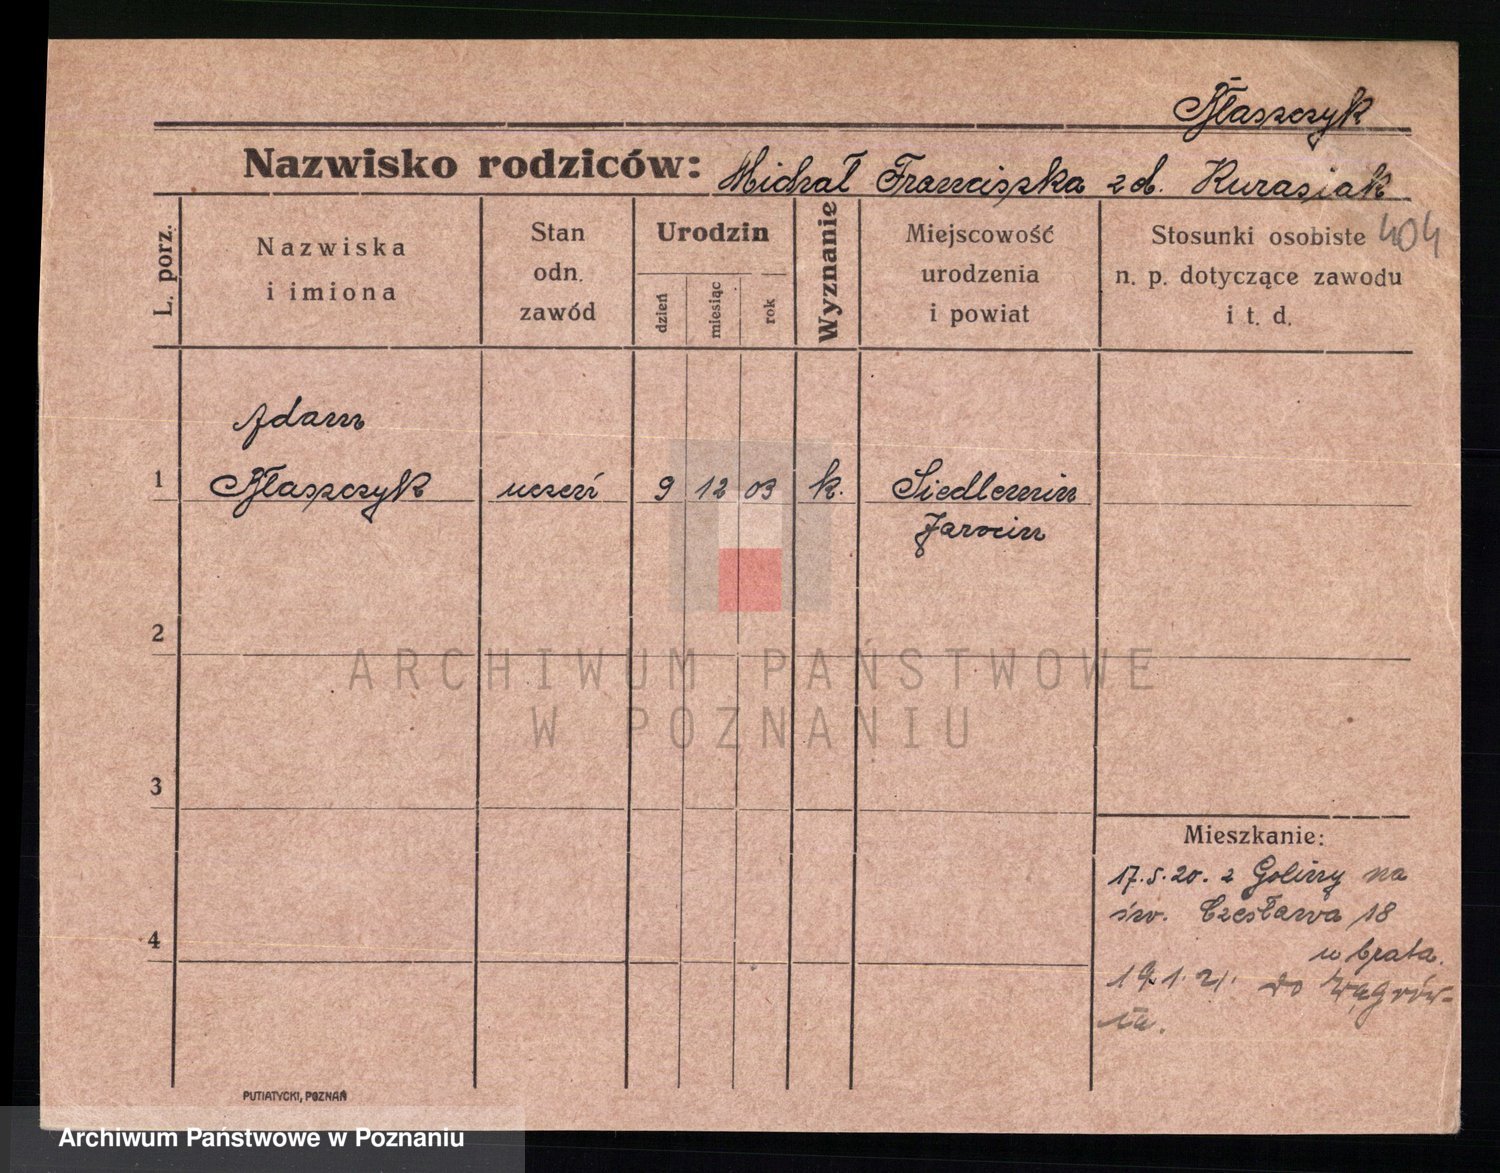 Błaszczyk
Nazwisko rodziców: Michał Franciszka zd. Kurasiak
404
L. porz.
Nazwiska
i imiona
Stan
odn.
zawód
Urodzin
dzień
miesiąc
rok
Wyznanie
Miejscowość
urodzenia
i powiat
Stosunki osobiste
n. p. dotyczące zawodu
i t. d.
Adam
1 Błaszczyk uczeń 9 12 03 k. Siedlemin
Jarocin
2
ARCHIWUM PAŃSTWOWE
W POZNANIU
3
Mieszkanie:
17.5.20. z Goliny na
św. Czesława 18
u brata.
4
19.1.21. do Wągrów-
ca.
PUTIATYCKI, POZNAŃ
Archiwum Państwowe w Poznaniu